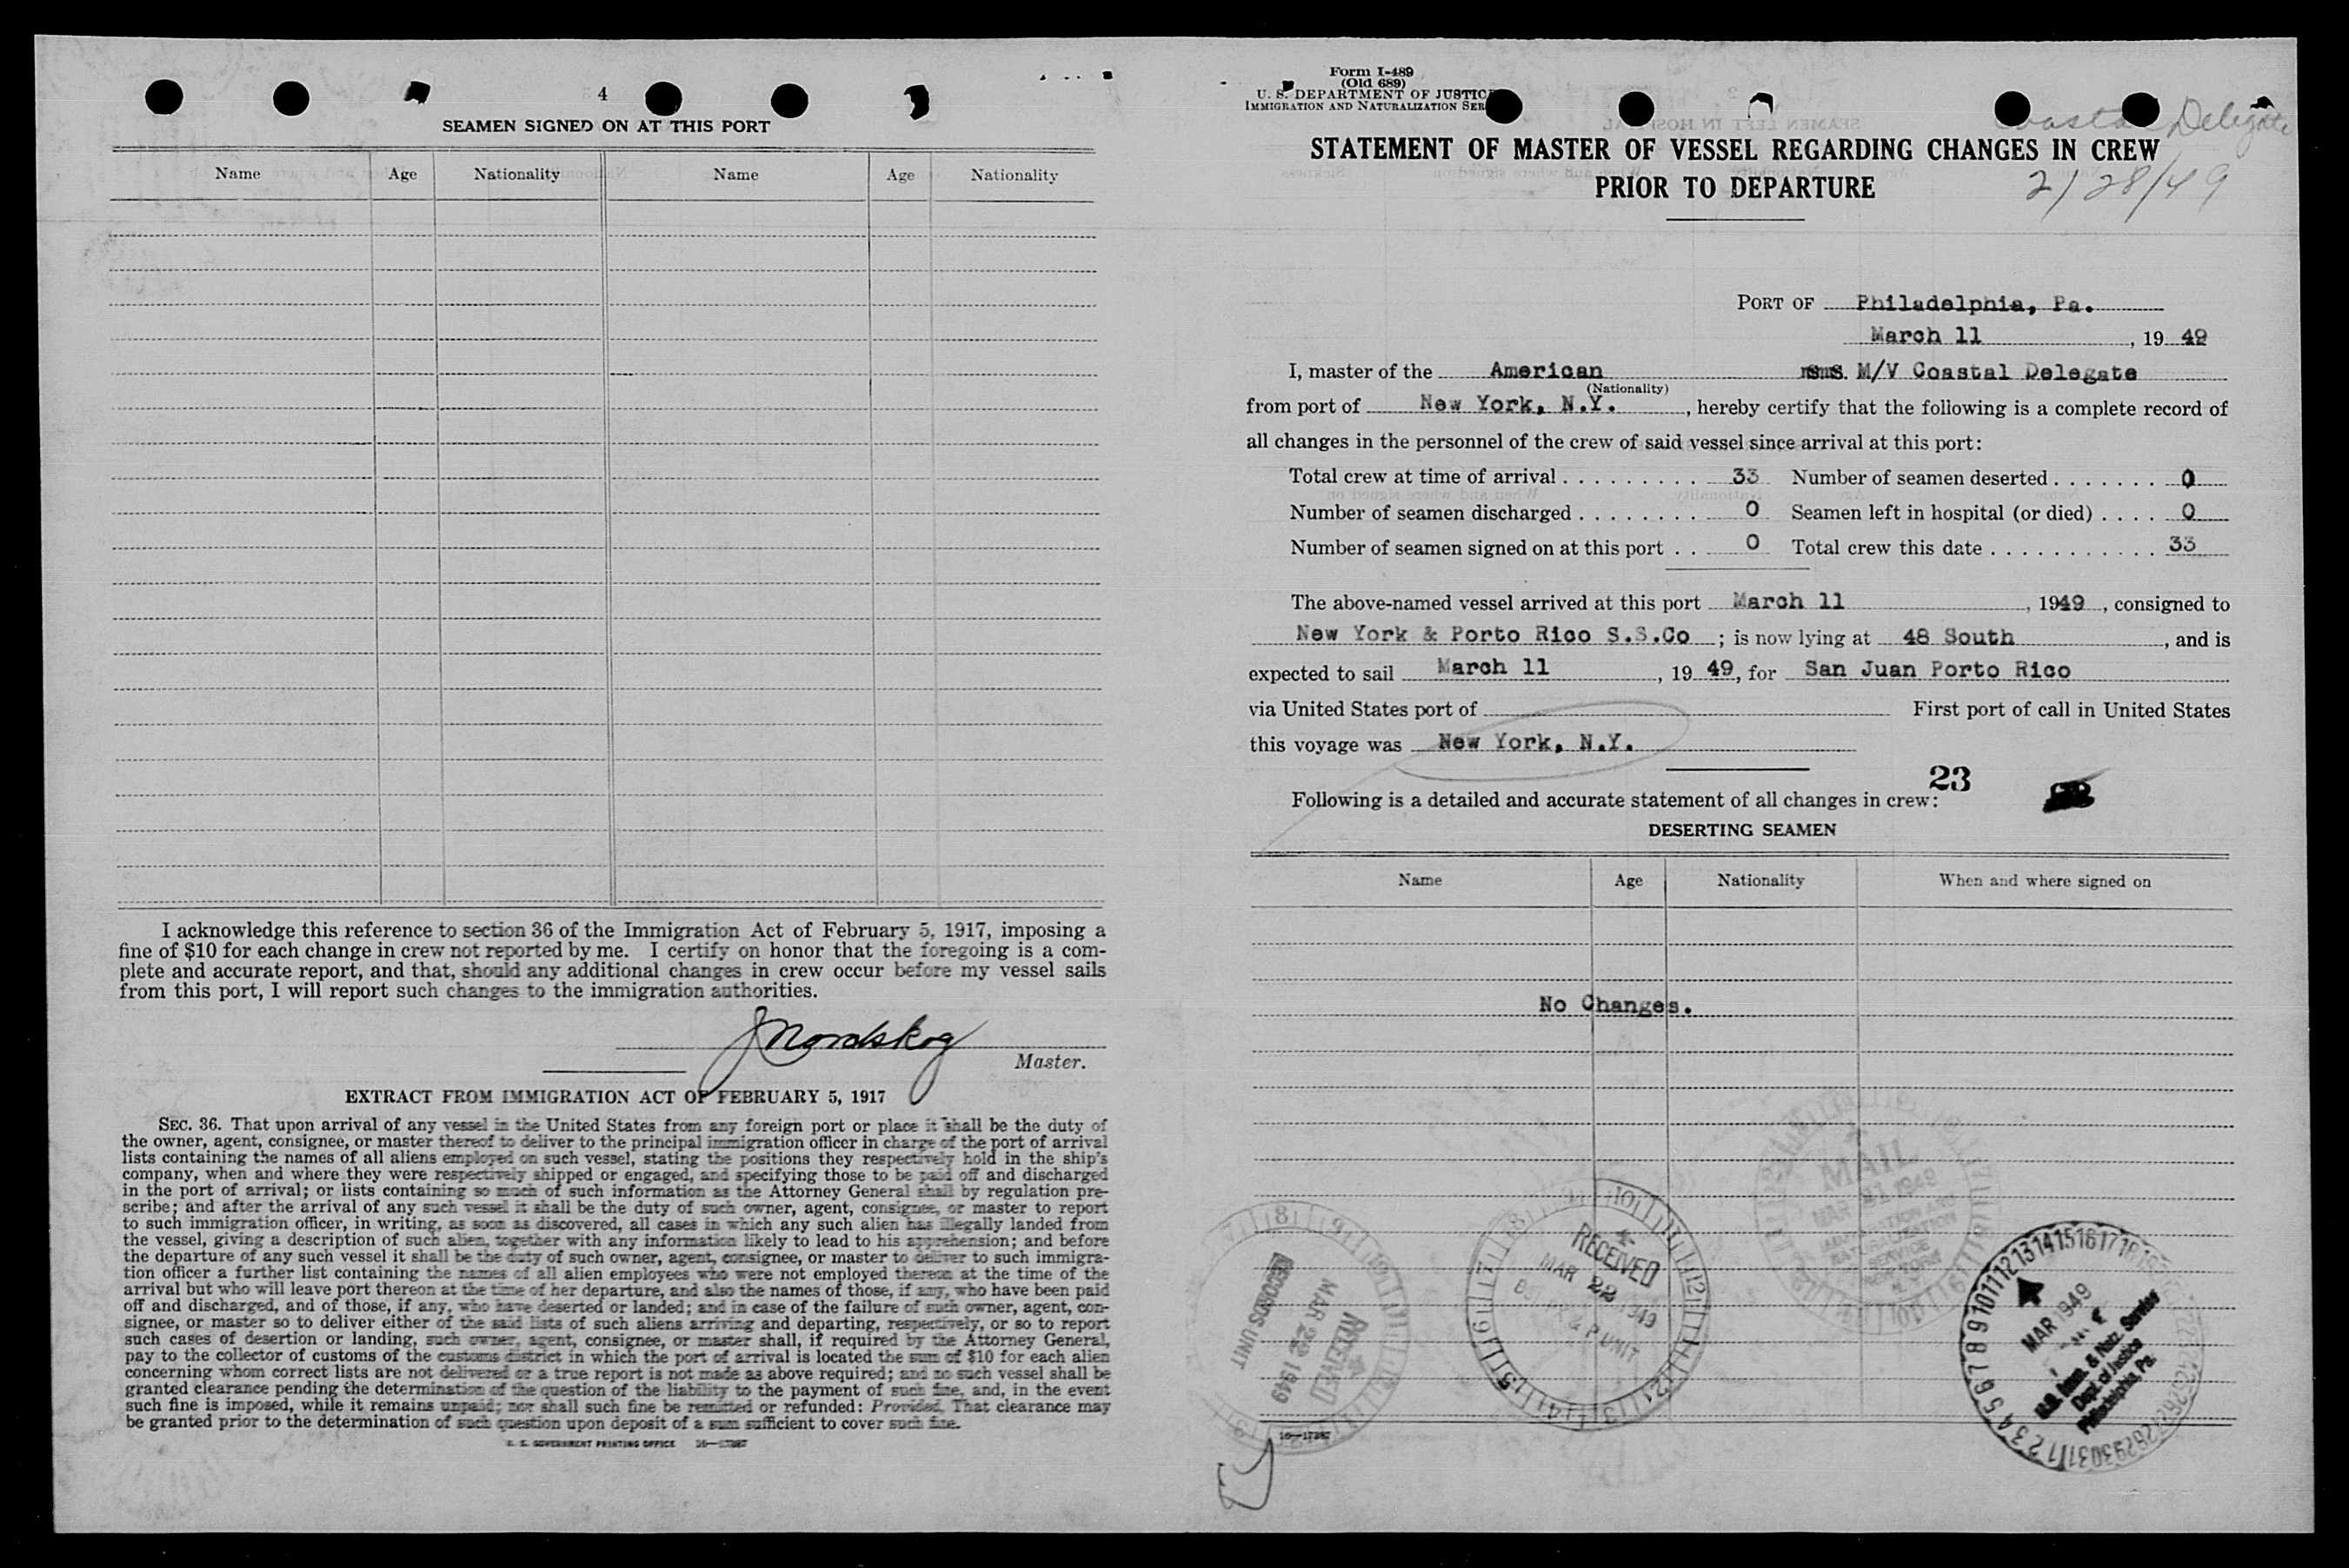 4
SEAMEN SIGNED ON AT THIS PORT
Name Age Nationality Name Age Nationality
I acknowledge this reference to section 36 of the Immigration Act of February 5, 1917, imposing a
fine of $10 for each change in crew not reported by me. I certify on honor that the foregoing is a com-
plete and accurate report, and that, should any additional changes in crew occur before my vessel sails
from this port, I will report such changes to the immigration authorities.
J Nordskog
Master.
EXTRACT FROM IMMIGRATION ACT OF FEBRUARY 5, 1917
SEC. 36. That upon arrival of any vessel in the United States from any foreign port or place it shall be the duty of
the owner, agent, consignee, or master thereof to deliver to the principal immigration officer in charge of the port of arrival
lists containing the names of all aliens employed on such vessel, stating the positions they respectively hold in the ship's
company, when and where they were respectively shipped or engaged, and specifying those to be paid off and discharged
in the port of arrival; or lists containing so much of such information as the Attorney General shall by regulation pre-
scribe; and after the arrival of any such vessel it shall be the duty of such owner, agent, consignee, or master to report
to such immigration officer, in writing, as soon as discovered, all cases in which any such alien has illegally landed from
the vessel, giving a description of such alien, together with any information likely to lead to his apprehension; and before
the departure of any such vessel it shall be the duty of such owner, agent, consignee, or master to deliver to such immigra-
tion officer a further list containing the names of all alien employees who were not employed thereon at the time of the
arrival but who will leave port thereon at the time of her departure, and also the names of those, if any, who have been paid
off and discharged, and of those, if any, who have deserted or landed; and in case of the failure of such owner, agent, con-
signee, or master so to deliver either of the said lists of such aliens arriving and departing, respectively, or so to report
such cases of desertion or landing, such owner, agent, consignee, or master shall, if required by the Attorney General,
pay to the collector of customs of the customs district in which the port of arrival is located the sum of $10 for each alien
concerning whom correct lists are not delivered or a true report is not made as above required; and no such vessel shall be
granted clearance pending the determination of the question of the liability to the payment of such fine, and, in the event
such fine is imposed, while it remains unpaid; nor shall such fine be remitted or refunded: Provided, That clearance may
be granted prior to the determination of such question upon deposit of a sum sufficient to cover such fine.
U. S. GOVERNMENT PRINTING OFFICE 16—17387
Form I-489
(Old 689)
U. S. DEPARTMENT OF JUSTICE
IMMIGRATION AND NATURALIZATION SER
Coastal Delegate
2/28/49
STATEMENT OF MASTER OF VESSEL REGARDING CHANGES IN CREW
PRIOR TO DEPARTURE
PORT OF Philadelphia, Pa.
March 11, 19 49
I, master of the American S.S. M/V Coastal Delegate
(Nationality)
from port of New York, N.Y., hereby certify that the following is a complete record of
all changes in the personnel of the crew of said vessel since arrival at this port:
Total crew at time of arrival . . . . . . . . . 33 Number of seamen deserted . . . . . . . 0
Number of seamen discharged . . . . . . . . 0 Seamen left in hospital (or died) . . . . 0
Number of seamen signed on at this port . . 0 Total crew this date . . . . . . . . . . . 33
The above-named vessel arrived at this port March 11, 1949, consigned to
New York & Porto Rico S.S.Co; is now lying at 48 South, and is
expected to sail March 11, 19 49, for San Juan Porto Rico
via United States port of First port of call in United States
this voyage was New York, N.Y.
23
Following is a detailed and accurate statement of all changes in crew:
DESERTING SEAMEN
Name Age Nationality When and where signed on
No Changes.
RECORDS UNIT
MAR 22 1949
RECEIVED
RECEIVED
MAR 22 1949
P UNIT
MAIL
MAR 21 1949
IMMIGRATION AND
NATURALIZATION
SERVICE
NEW YORK
MAR 1949
U.S. Imm. & Natz. Service
Dept. of Justice
Philadelphia, Pa.
16—17387